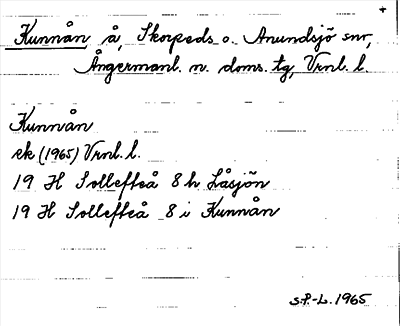 +
Kunnån å, Skorpeds o. Anundsjö snr,
Ångermanl. n. doms. tg, Vrnl. l.
Kunnån
ek (1965) Vrnl. l.
19 H Sollefteå 8 h Låsjön
19 H Sollefteå 8 i Kunnån
S.P.-L. 1965